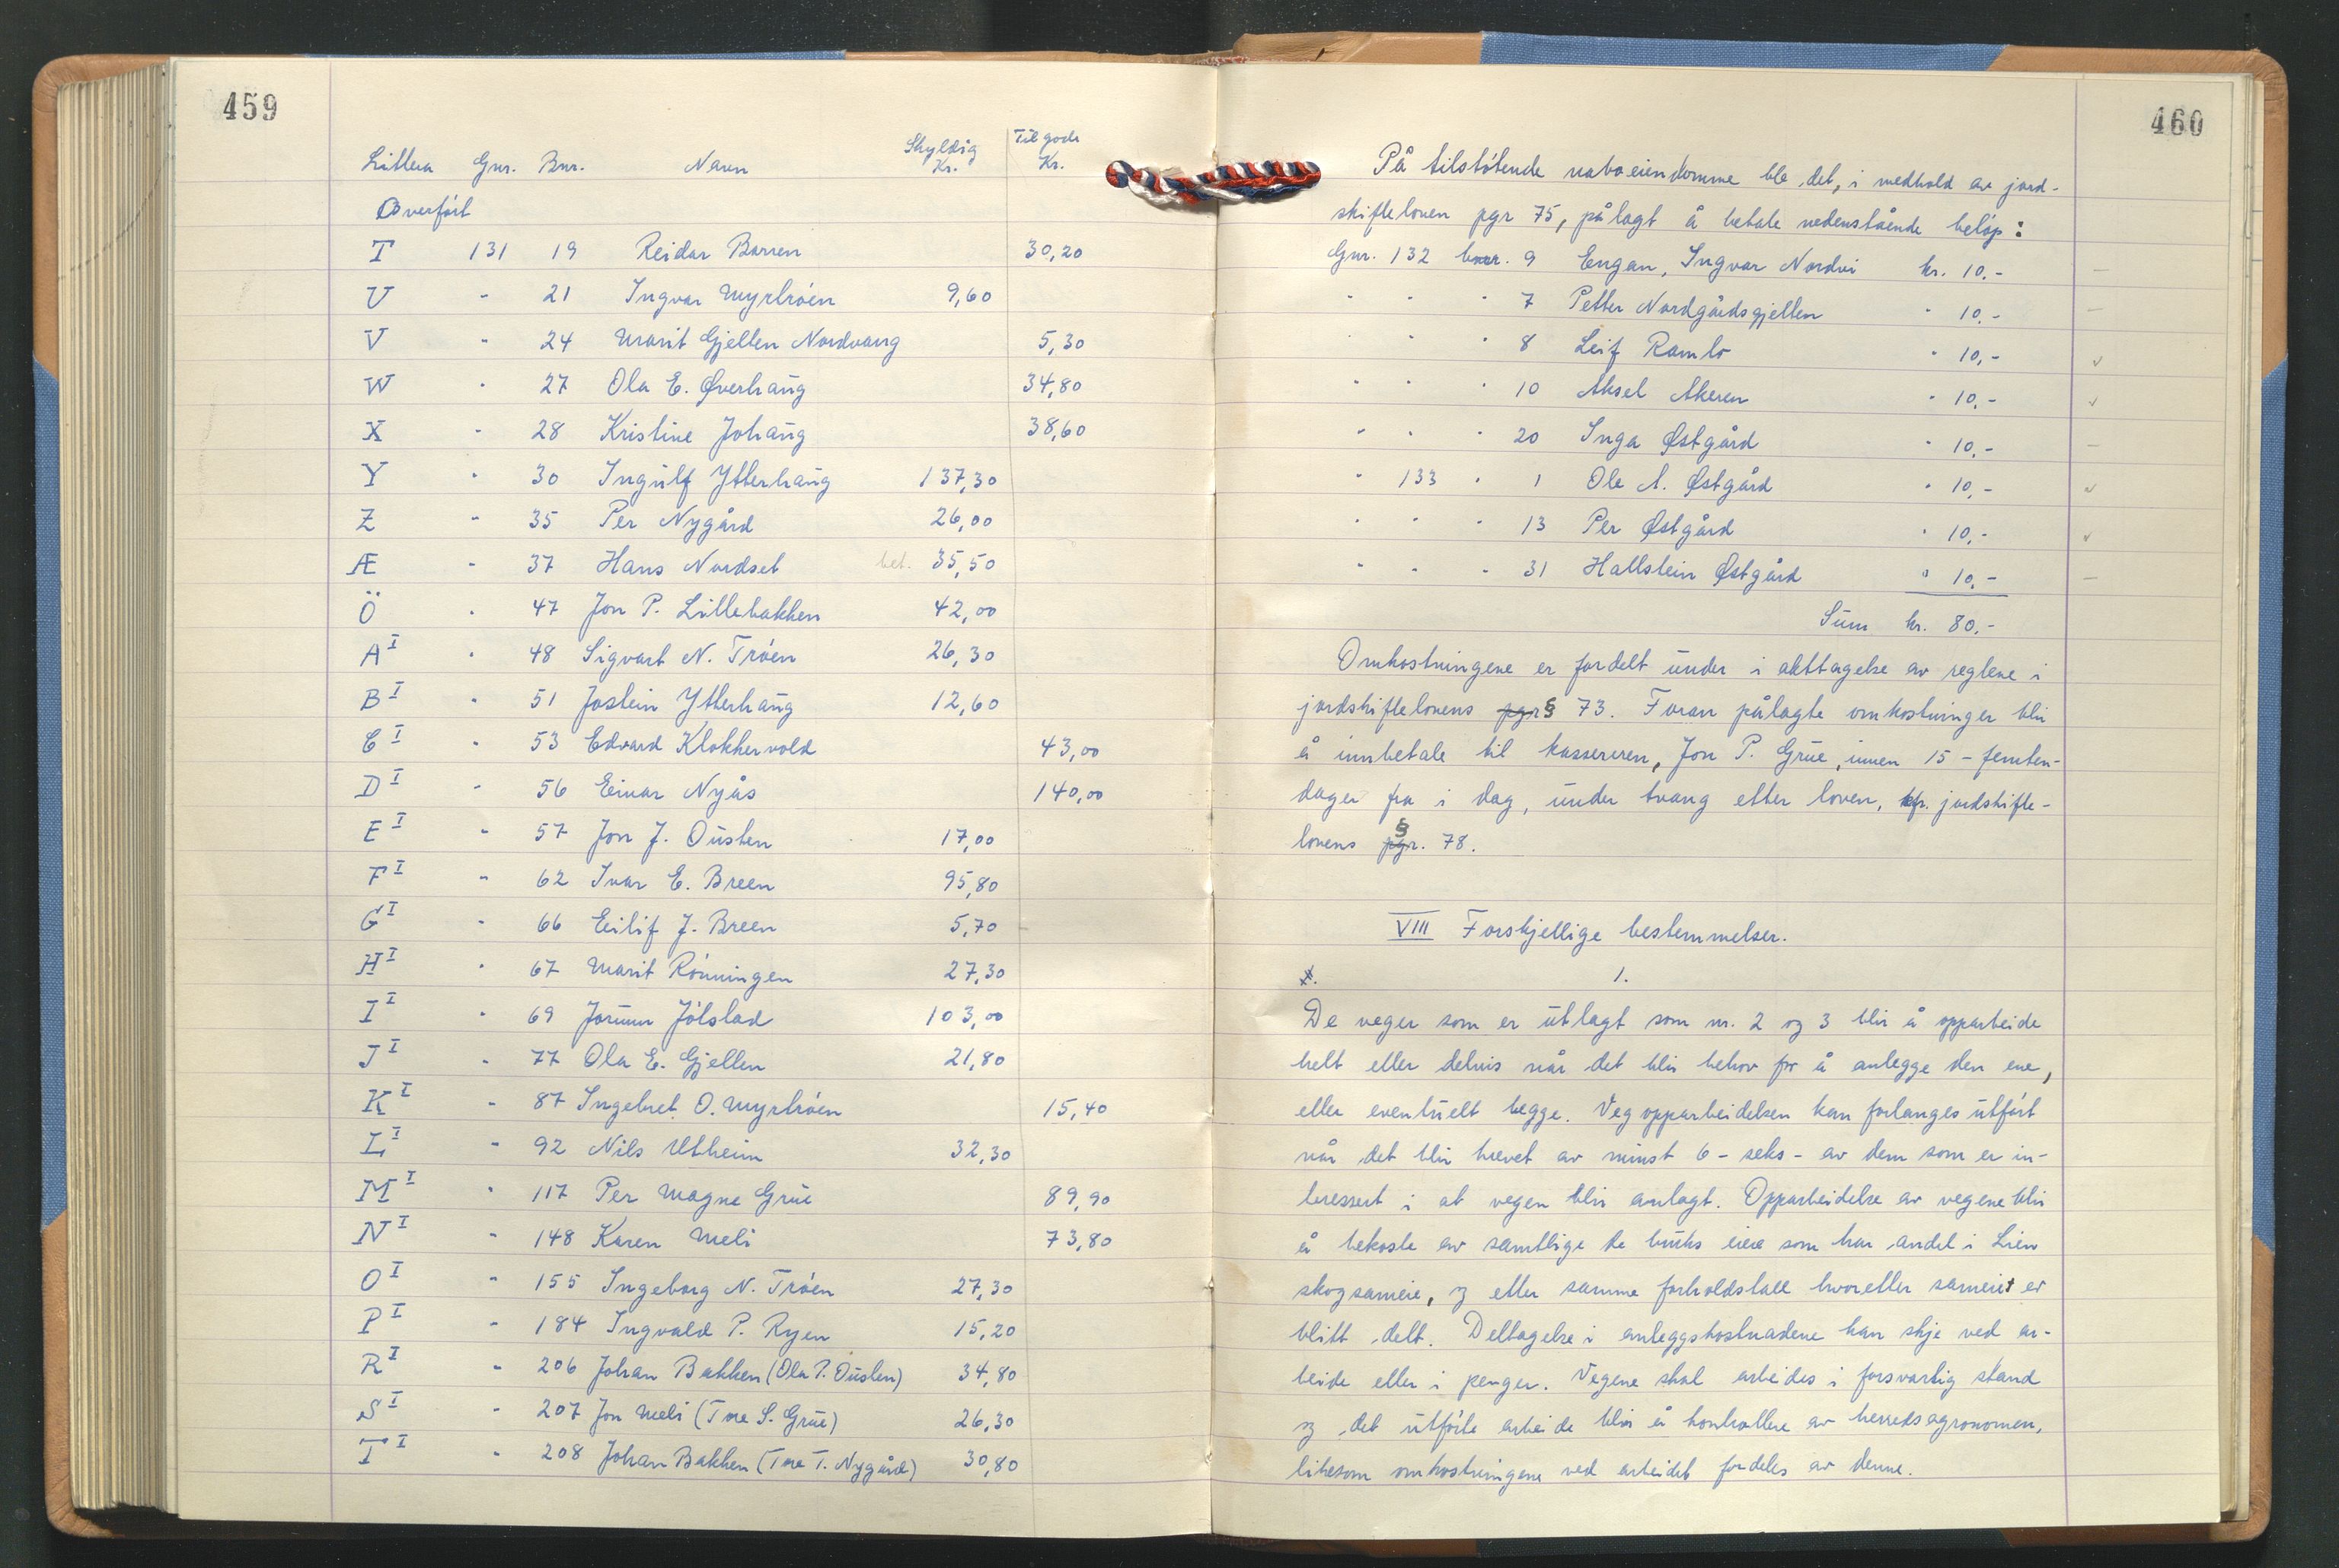 459
Littera Gnr. Bnr. Navn Skyldig Kr. Til gode Kr.
Overført
T 131 19 Reidar Borren 30,20
U " 21 Ingvar Myrtrøen 9,60
V " 24 Marit Gjelten Nordvang 5,30
W " 27 Ola E. Øverhaug 34,80
X " 28 Kristine Johaug 38,60
Y " 30 Ingulf Ytterhaug 137,30
Z " 35 Per Nygård 26,00
Æ " 37 Hans Nordset bet. 35,50
Ö " 47 Jon P. Lillebakken 42,00
A I " 48 Sigvart N. Trøen 26,30
B I " 51 Jostein Ytterhaug 12,60
C I " 53 Edvard Klokkervold 43,00
D I " 56 Einar Nyås 140,00
E I " 57 Jon J. Ousten 17,00
F I " 62 Ivar E. Breen 95,80
G I " 66 Eilif J. Breen 5,70
H I " 67 Marit Rønningen 27,30
I I " 69 Jorunn Jølstad 103,00
J I " 77 Ola E. Gjelten 21,80
K I " 87 Ingebret O. Myrtrøen 15,40
L I " 92 Nils Utheim 32,30
M I " 117 Per Magne Grue 89,90
N I " 148 Karen Meli 73,80
O I " 155 Ingeborg N. Trøen 27,30
P I " 184 Ingvald P. Ryen 15,20
R I " 206 Johan Bakken (Ola P. Ousten) 34,80
S I " 207 Jon Meli (Tore S. Grue) 26,30
T I " 208 Johan Bakken (Tore T. Nygård) 30,80
460
På tilstøtende naboeiendomme ble det, i medhold av jord-
skifteloven pgr 75, pålagt å betale nedenstående beløp:
Gnr. 132 bnr. 9 Engan, Ingvar Nordvi kr. 10.-
" " " 7 Petter Nordgårdsgjelten " 10.-
" " " 8 Leif Ramlo " 10,-
" " " 10 Aksel Akeren " 10,-
" " " 20 Inga Østgård " 10,-
" 133 " 1 Ole A. Østgård " 10,-
" " " 13 Per Østgård " 10,-
" " " 31 Hallstein Østgård " 10,-
Sum kr. 80.-
Omkostningene er fordelt under i akttagelse av reglene i
jordskiftelovens pgr § 73. Foran pålagte omkostninger blir
å innbetale til kassereren, Jon P. Grue, innen 15 - femten-
dager fra i dag, under tvang etter loven, kfr. jordskifte-
lovens pgr. § 78.
VIII Forskjellige bestemmelser.
1.
De veger som er utlagt som nr. 2 og 3 blir å opparbeide
helt eller delvis når det blir behov for å anlegge den ene,
eller eventuelt begge. Vegopparbeidelsen kan forlanges utført
når det blir krevet av minst 6 - seks - av dem som er in-
teressert i at vegen blir anlagt. Opparbeidelse av vegene blir
å bekoste av samtlige de bruks eiere som har andel i Lien
skogsameie, og etter samme forholdstall hvoretter sameiet er
blitt delt. Deltagelse i anleggskostnadene kan skje ved ar-
beide eller i penger. Vegene skal arbeides i forsvarlig stand
og det utførte arbeide blir å kontrollere av herredsagronomen,
likesom omkostningene ved arbeidet fordeles av denne.